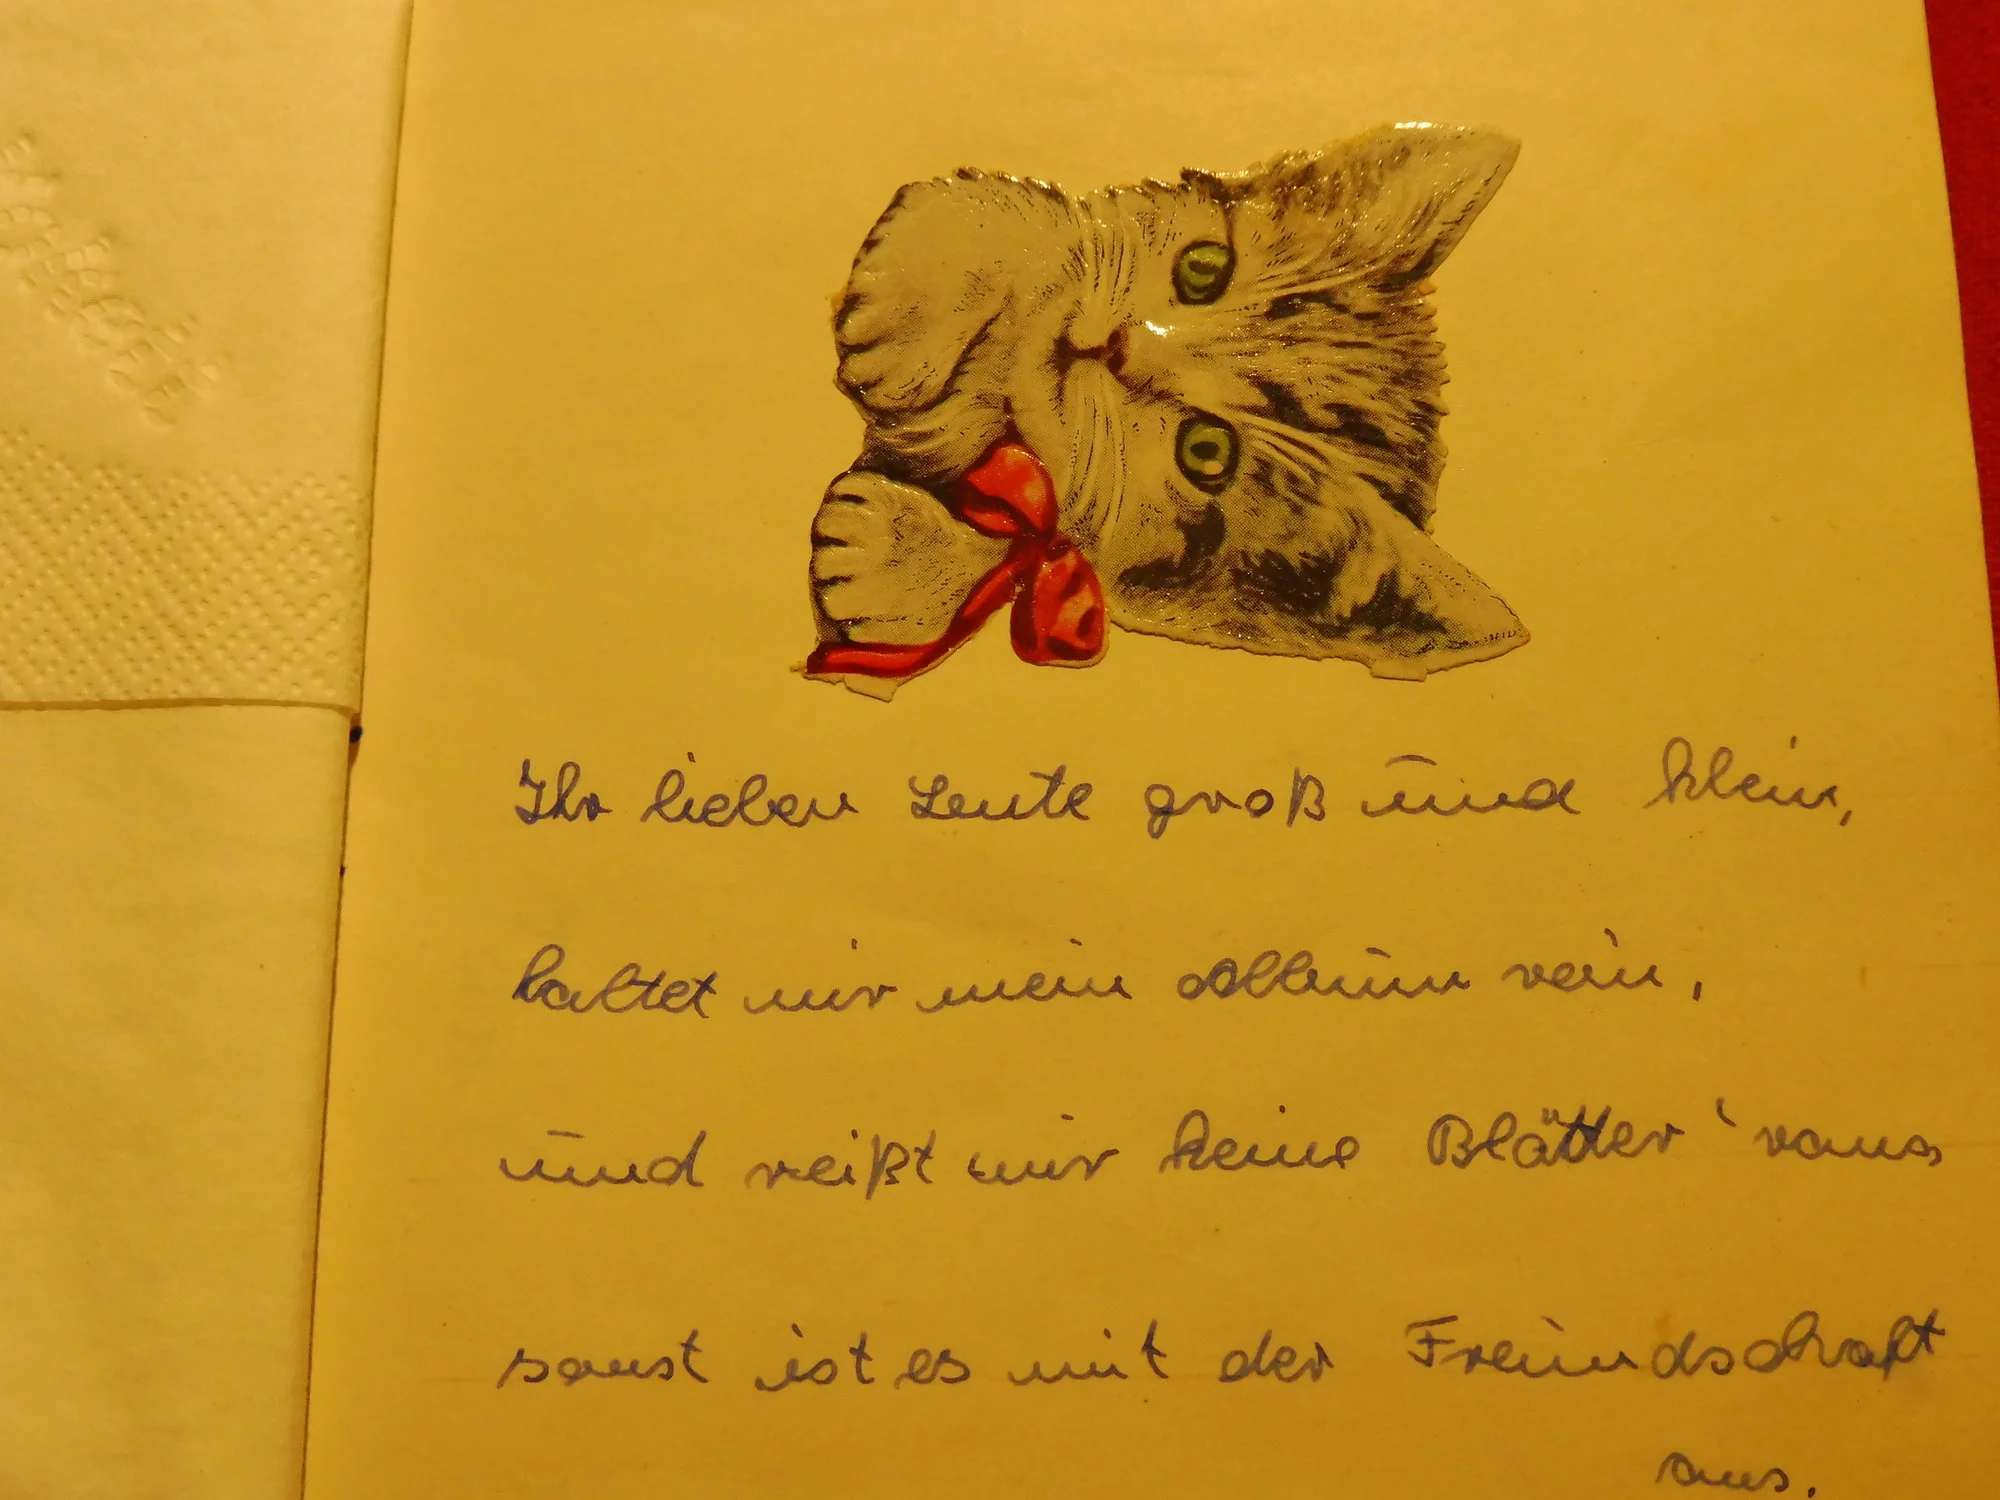 Ihr lieben Leute groß und klein,
haltet mir mein Album rein,
und reißt mir keine Blätter 'raus
sonst ist es mit der Freundschaft
aus.